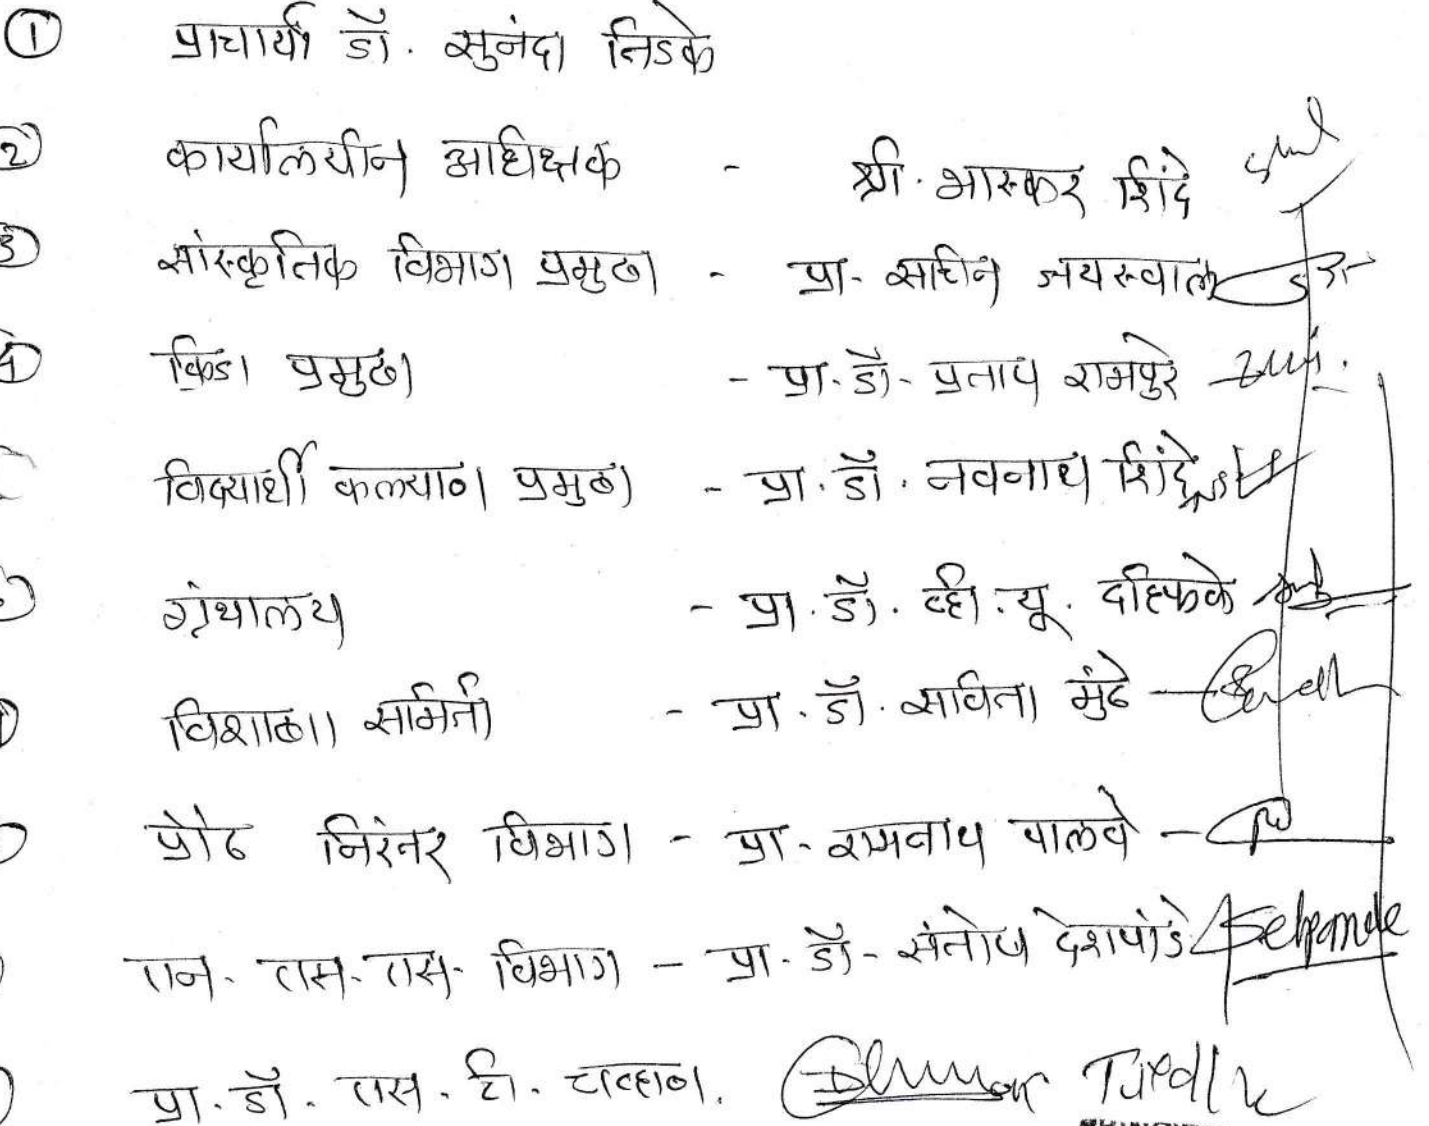 ① प्राचार्या डॉ. सुनंदा तिडके
② कार्यालयीन अधिक्षक - श्री. भास्कर शिंदे
③ सांस्कृतिक विभाग प्रमुख - प्रा. सचिन जयस्वाल
④ क्रिडा प्रमुख - प्रा. डॉ. प्रताप रामपुरे
विद्यार्थी कल्याण प्रमुख - प्रा. डॉ. नवनाथ शिंदे
ग्रंथालय - प्रा. डॉ. व्ही. यू. दहिफळे
विशाखा समिती - प्रा. डॉ. सविता मुंढे
प्रौढ निरंतर विभाग - प्रा. रामनाथ पालवे
एन. एस. एस. विभाग - प्रा. डॉ. संतोष देशपांडे
प्रा. डॉ. एस. टी. चव्हाण.